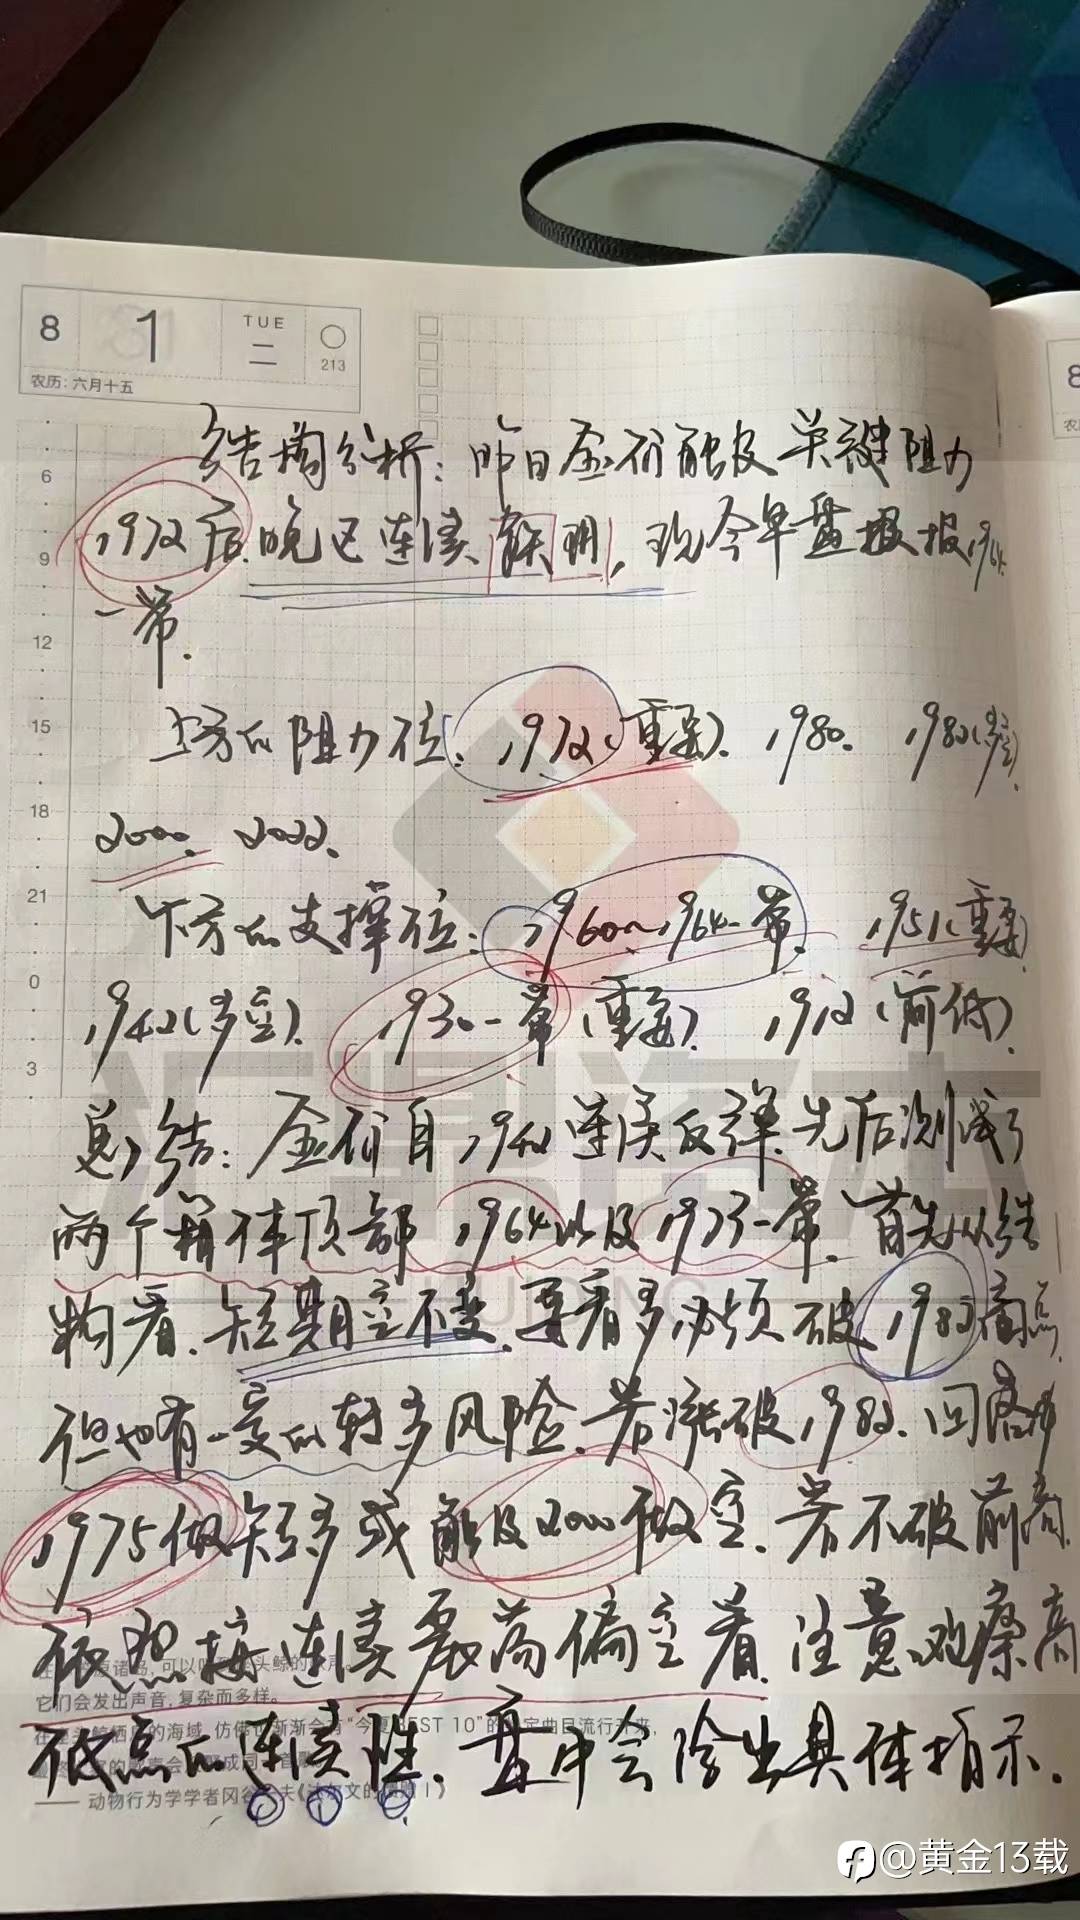 8 1 TUE 二 213
农历: 六月十五
结构分析: 昨日金价触及关键阻力
1972后晚已连续 现今早盘报报1964
一带.
上方的阻力位: 1972(重要). 1980. 1982(多空)
2000. 2022.
下方的支撑位: 1960~1964一带. 1951(重要)
1942(多空). 1930一带(重要). 1912(前低).
总结: 金价自1942连续反弹. 先后测试了
两个箱体顶部 1964以及1973一带. 首先从结
构看. 短期空不变. 要看多必须破1982高点.
但也有一定的转多风险. 若涨破1982. 回落
1975做短多或触及2000做空. 若不破前高.
依然按连续震荡偏空看. 注意观察高
低点的连续性. 盘中会给出具体指示.
6
9
12
15
18
21
0
3
它们会发出声音, 复杂而多样。
8
@黄金13载